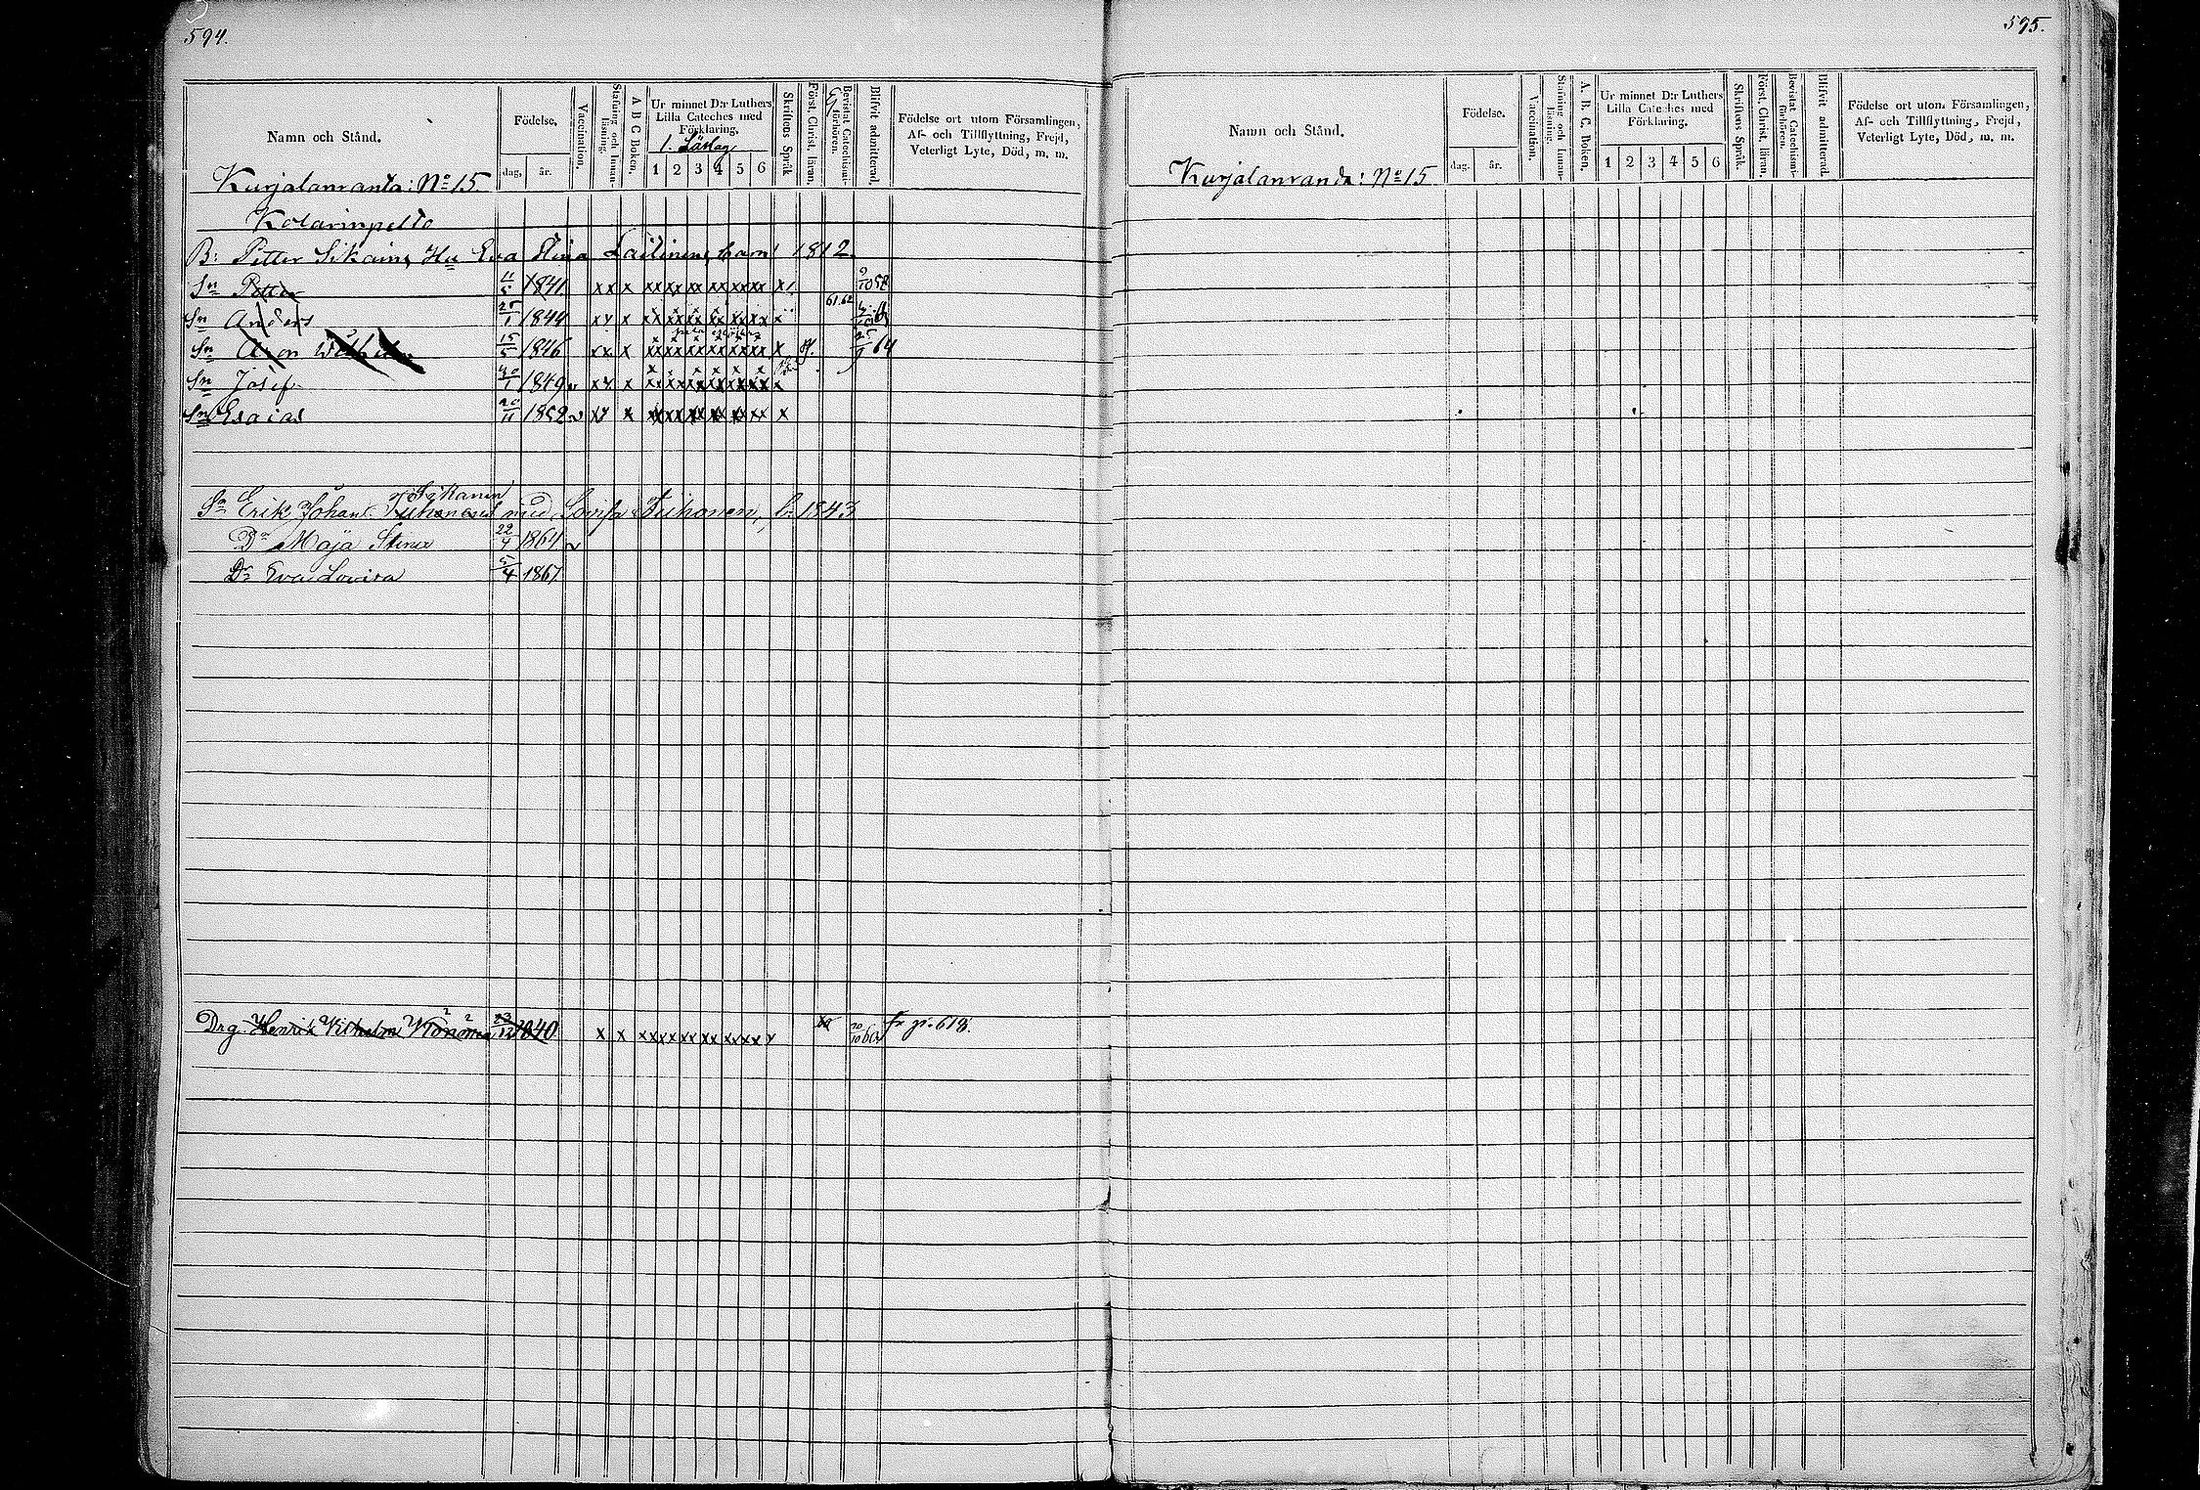 594.
Namn och Stånd.
Födelse.
dag.
år.
Vaccination.
Stafning och Innan-läsning.
A B C Boken.
Ur minnet D:r Luthers
Lilla Cateches med
Förklaring.
1 2 3 4 5 6
Skriftens Språk
Först. Christ. läran.
Bevistat Catechismi-förhören.
Blifvit admitterad.
Födelse ort utom Församlingen,
Af- och Tillflyttning, Frejd,
Veterligt Lyte, Död, m. m.
Kurjalanranta: No 15.
Kolarinpelto
B: Petter Sikain, Hu Eva Stina Laitinens barn 1812
Sn Petter 11/5 1841 xx x xx xx xx xx xx xx x 9/10 58
Sn Anders 25/1 1844 xx x xx xx xx xx xx xx x 61.62
Sn Wilhelm 15/5 1846 xx x xx xx xx xx xx xx x 64
Sn Josef 30/1 1849 xx x xx xx xx xx xx xx x
Sn Esaias 20/11 1852 xx x xx xx xx xx xx xx x
Sikanen
Sn Erik Johan med Lovisa Tiihonen, b. 1843
Dr Maja Stina 22/4 1864
Dr Eva Lovisa 5/4 1867
Drg Henrik Vilhelm 1840 x x xx xx xx xx xx xx 20/10 60 fr. p. 618.
595.
Namn och Stånd.
Födelse.
dag.
år.
Vaccination.
Stafning och Innan-läsning.
A. B. C. Boken.
Ur minnet D:r Luthers
Lilla Cateches med
Förklaring.
1 2 3 4 5 6
Skriftens Språk.
Först. Christ. läran.
Bevistat Catechismi-förhören.
Blifvit admitterad.
Födelse ort utom Församlingen,
Af- och Tillflyttning, Frejd,
Veterligt Lyte, Död, m. m.
Kurjalanranda: No 15